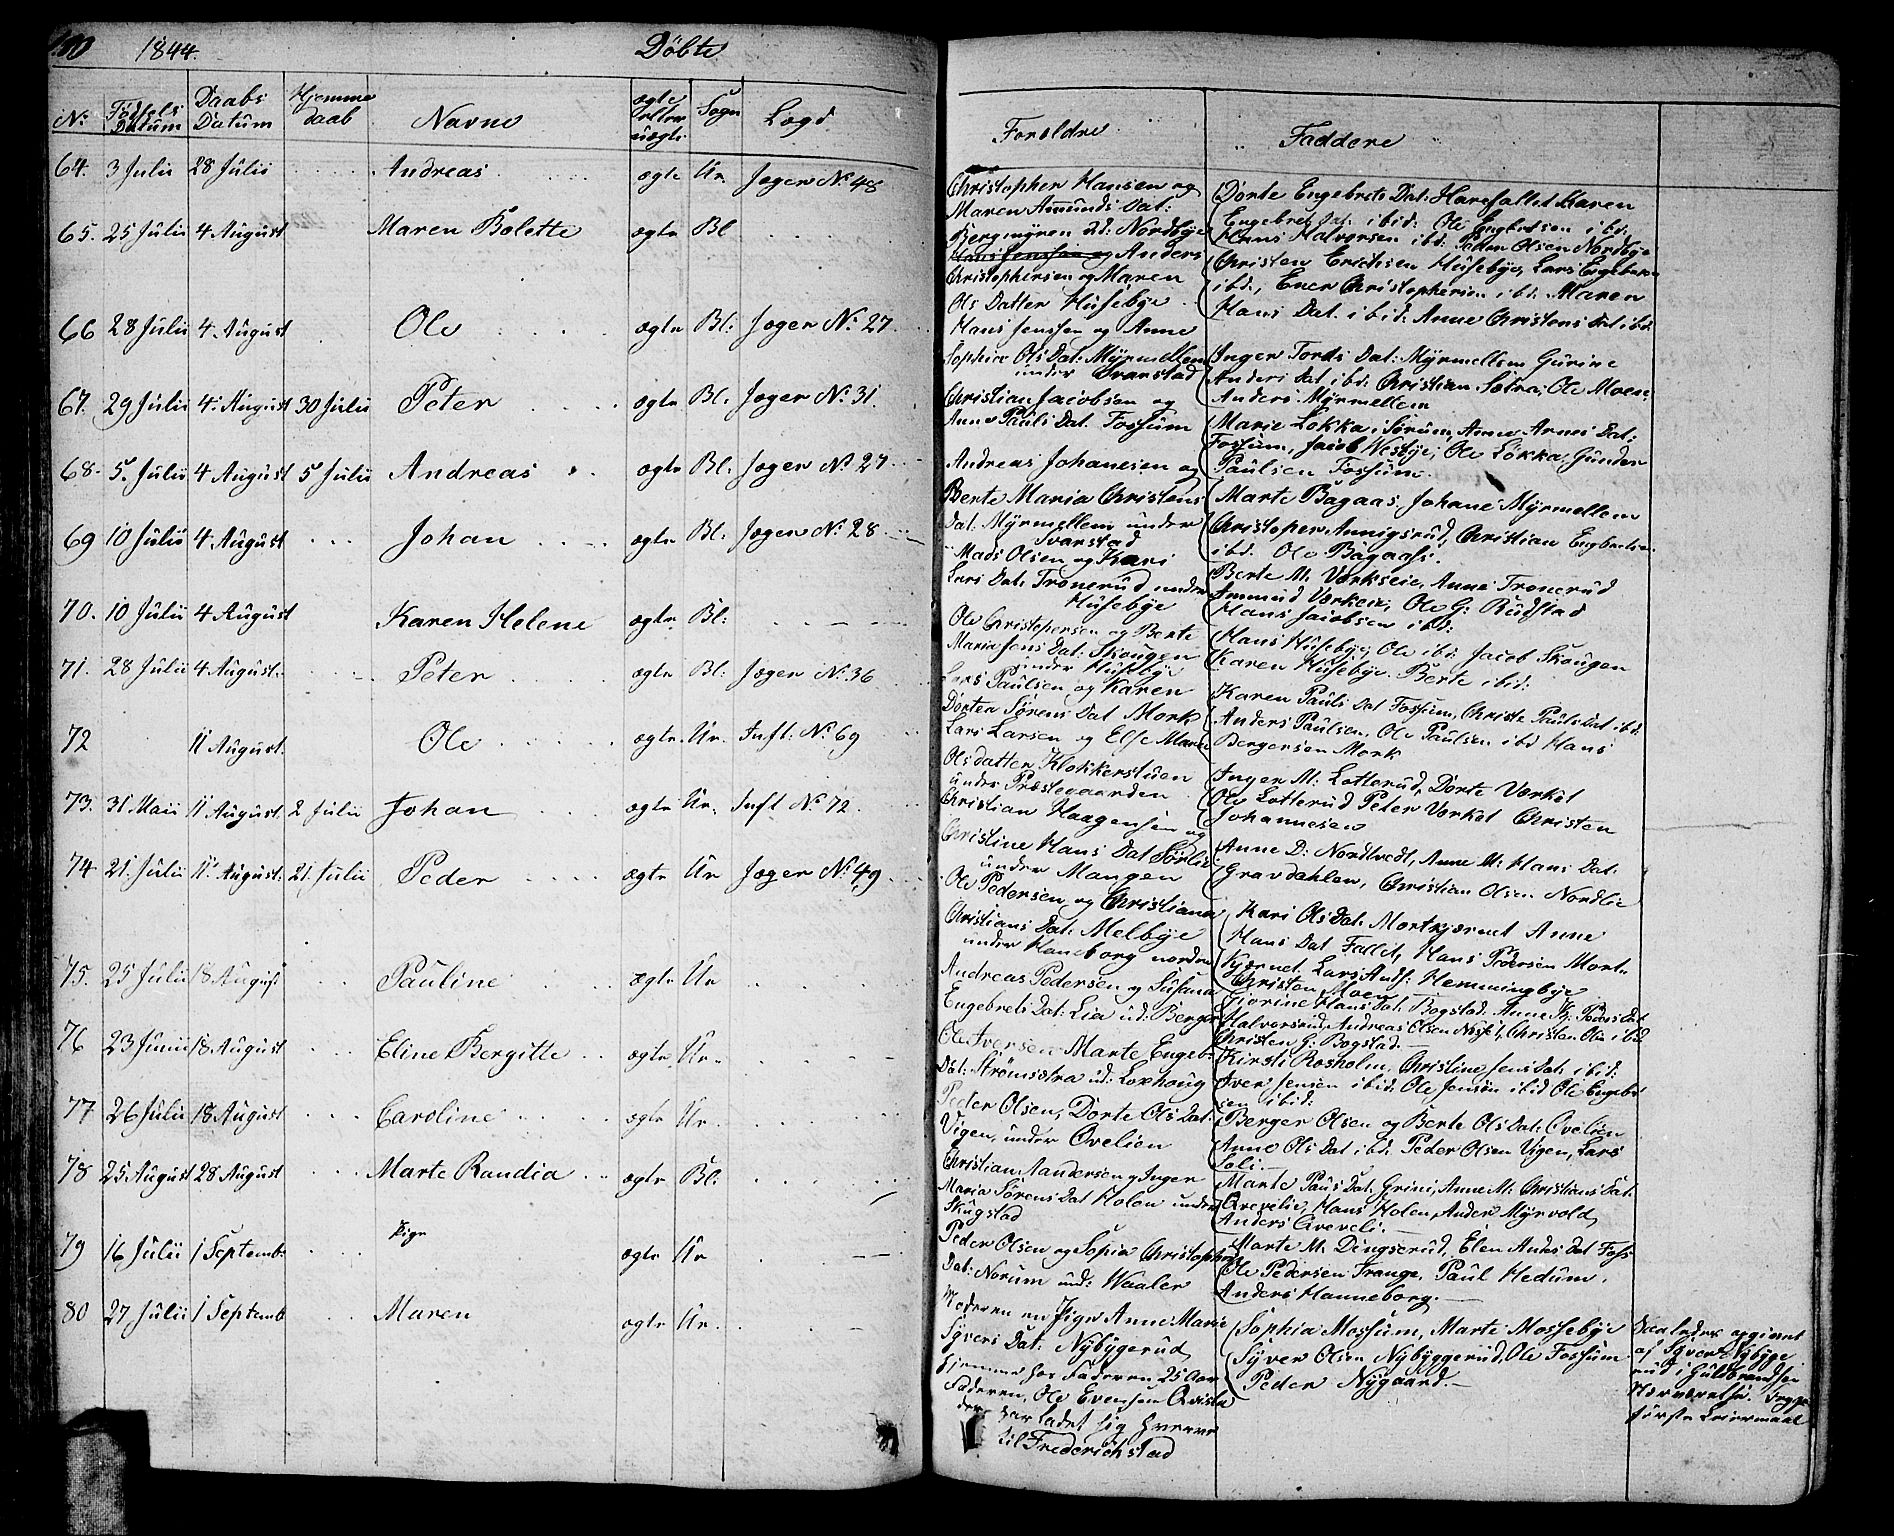 1844. Döbte
No Födsels Datum Daabs Datum Hjemme daab Navne ægte eller uægte Sogn Lægd
64. 3 Julii 28 Julii Andreas ægte Ur. Jæger No 48
65. 25 Julii 4 August Maren Bolette ægte Bl
66 28 Julii 4 August Ole ægte Bl: Jæger No 27
67. 29 Julii 4 August 30 Julii Peter ægte Bl. Jæger No 31
68. 5 Julii 4 August 5 Julii Andreas ægte Bl. Jæger No 27
69 10 Julii 4 August Johan ægte Bl. Jæger No 28
70. 10 Julii 4 August Karen Helene ægte Bl:
71. 28 Julii 4 August. Peter ægte Bl: Jæger No 36
72 11 August. Ole ægte Ur. Inft: No 69
73. 31 Maii 11 August. 2 Julii Johan ægte Ur. Inft No 72
74 21 Julii 11 August. 21 Julii Peder ægte Ur Jæger No 49
75. 25 Julii 18 August Pauline ægte Ur
76 23 Junii 18 August Eline Bergitte ægte Ur.
77 26 Julii 18 August Caroline ægte Ur
78 25 August 28 August Marte Randia ægte Bl:
79 16 Julii 1 Septemb: Pige ægte Ur
80 27 Julii 1 Septemb Maren ægte Ur.
Foreldre Faddere
Christopher Hansen og
Maren Amunds Dat:
Bergmyren ud: Nordbye
Hans Jenssen og Anders
Christophersen og Maren
Ols Datter Husebye
Hans Jenssen og Anne
Sophie Ols Dat: Myrmellem
under Svarstad
Christian Jacobsen og
Anne Pauls Dat. Fossum
Andreas Johanesen og
Berte Maria Christens
Dat: Myrmellem under
Svarstad
Mads Olsen og Kari
Lars Dat: Tronerud under
Husebye
Ole Christopersen og Berte
Maria Jens Dat: Skougen
under Husebye
Lars Paulsen og Karen
Dorten Sørens Dat Mork
Lars Larsen og Else Marie
Olsdatter Klokkerstuen
under Præstegaarden
Christian Haagensen og
Christine Hans Dat Sørlie
under Mangen
Ole Pedersen og Christiane
Christians Dat: Melbye
under Haneborg nordre
Andreas Pedersen og Susana
Engebrets Dat: Lia ud: Berger
Ole Iversen Marte Engeb:
Dat: Strömsætra ud: Loxhoug
Peder Olsen, Dorte Ols Dat:
Vigen, under Ovelien
Christian Aandersen og Inger
Maria Sørens Dat Holen under
Skugstad
Peder Olsen og Sopia Christophers
Dat: Norum und: Waaler
Moderen en Pige Anne Marie
Syvers Dat: Nybyggerud
hjemme hos Faderen 25 Aar
Faderen, Ole Evensen
har ladet sig hverve
til Frederichstad
Dorte Engebrets Dat: Harefallet Karen
Engebret Dat ibid: Ole Engebretsen ibd:
Hans Halvorsen ibd: Peder Olsen Nordbye
Christen Erichsen Husebye, Lars Engebretsen
ibd:, Ener Christophersen ibd: Maren
Hans Dat. ibid: Anne Christens Dat ibd:
Inger Tords Dat: Myrmellem Gurine
Anders Dat ibd: Christian Sætra, Ole Moen
Anders Myrmellem
Marie Løkka i Sørum, Anne Arnes Dat:
Fossum, Jacob Nesbye, Ole Løkka, Gunder
Paulsen Fossum.
Marte Bagaas. Johane Myrmellem
Christoper Annigsrud, Christian Engbretsen
ibd: Ole Bagaas.
Berte M. Værkseie, Anne Tronerud
Ammund Værkeie, Ole G: Rudstad
Hans Jacobsen ibd:
Hans Husebye, Ole ibd: Jacob Skougen
Karen Husebye. Berte ibid:
Karen Pauls Dat Fossum, Christe Pauls Dat ibd:
Anders Paulsen, Ole Paulsen ibd Hans
Bergersen Mork
Inger M: Lotterud, Dorte Værket
Ole Lotterud Peter Værket Christen
Johannesen
Anne D: Nordtvedt, Anne M: Hans Dat:
Gravdahlen, Christian Olsen Nordlie
Kari Ols Dat: Mortkjærnet Anne
Hans Dat Fallet, Hans Pedersen Mort:
Kjærnet, Lars Ands: Hemmingbye
Christen Moen
Gjorine Hans Dat. Bogstad. Anne K: Peders Dat
Halvorsrud, Andreas Olsen Næsset, Christen Olsen ibd
Christen G: Bogstad.
Kirsti Rosholm, Christine Jens Dat ibid:
Iver Jensen ibid: Ole Jensen ibid Ole Engeb:
sen ibid:
Berger Olsen og Berte Ols Dat: Ovelien
Anne Ols Dat ibd: Peder Olsen Vigen, Lars
Lali.
Marte Pauls Dat: Grini, Anne M: Christians Dat.
Qvevelie, Hans Holen, Ander Myrvold,
Anders Qveveli.
Marte M. Dingserud, Elen Andes Dat Foss
Ole Pedersen Trange, Paul Hedum,
Anders Hanneborg.
Sophia Mossum, Marte Mossebye
Syver Olsen Nybyggerud, Ole Fossum
Peder Nygaard.
Saaledes opgivet
af Syver Nybyge
rud i Guldbrandsen
Nærværelse. Begge
første Leiermaal